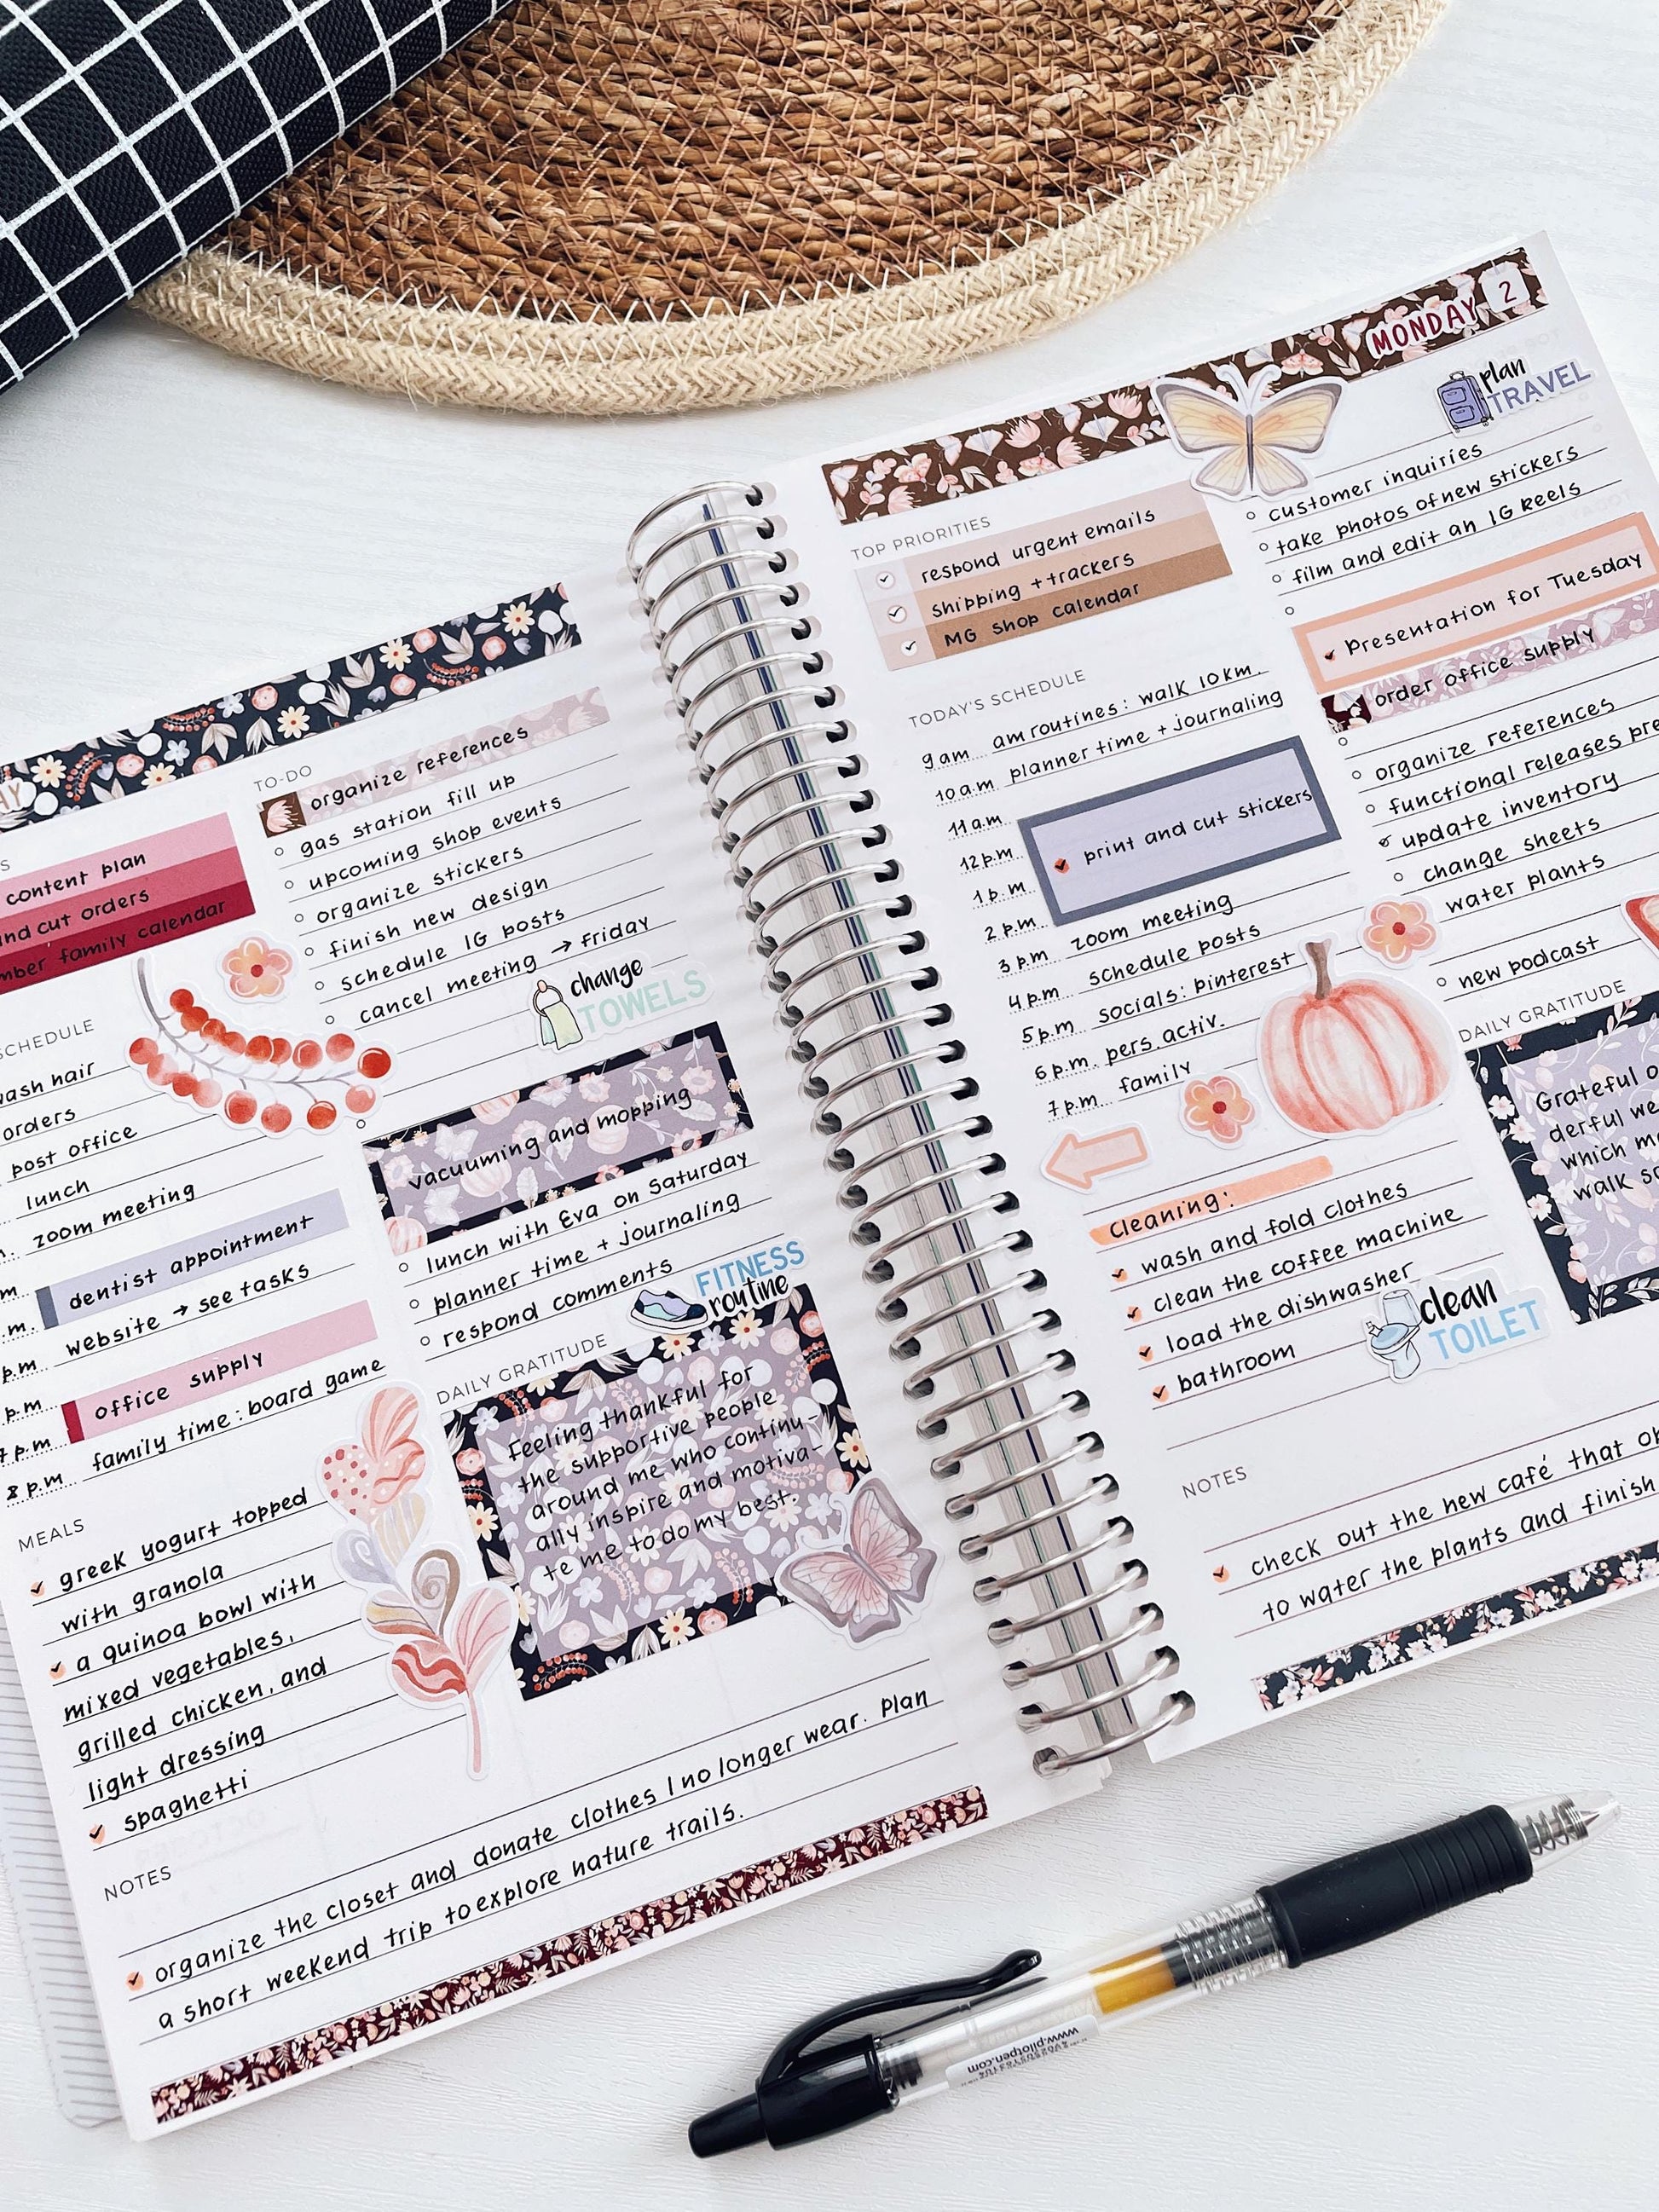 content plan
and cut orders
family calendar
SCHEDULE
wash hair
orders
post office
lunch
zoom meeting
dentist appointment
website → see tasks
p.m
office supply
p.m
7 p.m
family time: board game
8 p.m.
MEALS
greek yogurt topped
with granola
a quinoa bowl with
mixed vegetables,
grilled chicken, and
light dressing
spaghetti
TO-DO
organize references
gas station fill up
upcoming shop events
organize stickers
finish new design
schedule IG posts
cancel meeting → Friday
change
TOWELS
vacuuming and mopping
lunch with Eva on Saturday
planner time + journaling
respond comments
FITNESS
routine
DAILY GRATITUDE
Feeling thankful for
the supportive people
around me who continu-
ally inspire and motiva-
te me to do my best.
NOTES
organize the closet and donate clothes I no longer wear. Plan
a short weekend trip to explore nature trails.
MONDAY 2
TOP PRIORITIES
respond urgent emails
shipping + trackers
MG shop calendar
TODAY'S SCHEDULE
9 am am routines: walk 10 km.
10 a.m planner time + journaling
11 a.m
12 p.m print and cut stickers
1 p.m
2 p.m zoom meeting
3 p.m schedule posts
4 p.m socials: pinterest
5 p.m pers. activ.
6 p.m. family
7 p.m.
Cleaning:
wash and fold clothes
clean the coffee machine
load the dishwasher
bathroom
clean
TOILET
plan
TRAVEL
customer inquiries
take photos of new stickers
film and edit an IG Reels
Presentation for Tuesday
order office supply
organize references
functional releases pre
update inventory
change sheets
water plants
new podcast
DAILY GRATITUDE
Grateful o
derful we
which m
walk so
NOTES
check out the new café that op
to water the plants and finish
www.pilotpen.com